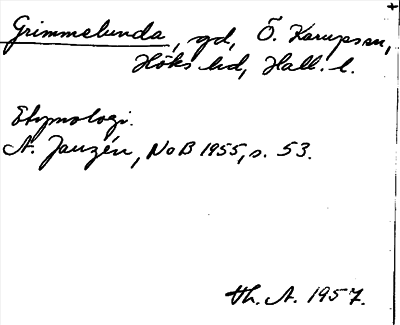 Grimmelunda, gd, Ö. Karupssn,
Höks hd, Hall. l.
Etymologi.
A. Janzén, NoB 1955, s. 53.
Th. A. 1957.